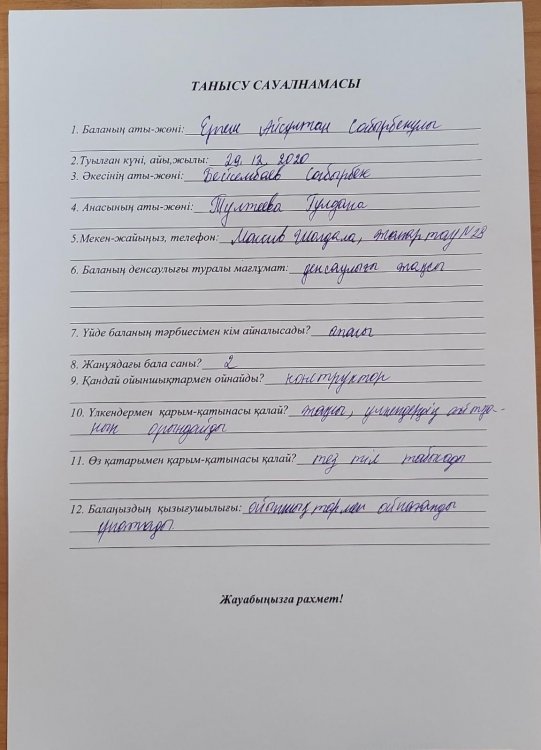 ТАНЫСУ САУАЛНАМАСЫ
1. Баланың аты-жөні: Ертен Айсұлтан Сабырбекұлы
2.Туылған күні, айы,жылы: 29. 12. 2020
3. Әкесінің аты-жөні: Бейсембаев Сабырбек
4. Анасының аты-жөні: Тултеева Гулдана
5.Мекен-жайыңыз, телефон: Массив Шолдала, тау N 23
6. Баланың денсаулығы туралы мағлұмат: денсаулығы жақсы
7. Үйде баланың тәрбиесімен кім айналысады? анасы
8. Жанұядағы бала саны? 2
9. Қандай ойыншықтармен ойнайды? конструктор
10. Үлкендермен қарым-қатынасы қалай? жақсы, үлкендердің айтқа-
нын орындайды
11. Өз қатарымен қарым-қатынасы қалай? тез тіл табысады
12. Балаңыздың қызығушылығы: ойыншықтармен ойнағанды
ұнатады
Жауабыңызға рахмет!